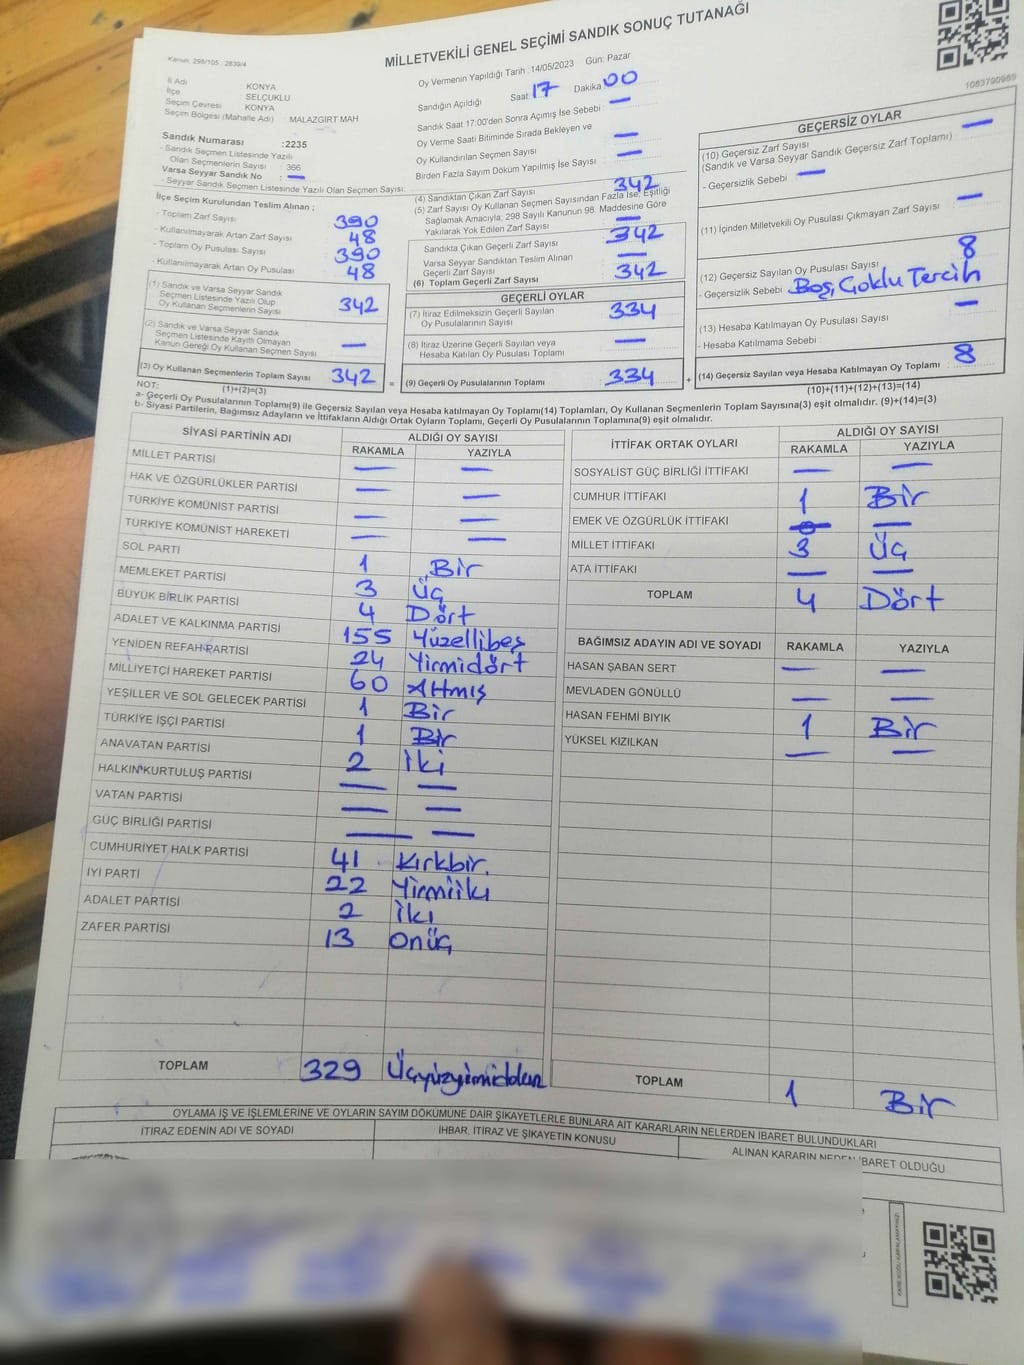 MİLLETVEKİLİ GENEL SEÇİMİ SANDIK SONUÇ TUTANAĞI
Kanun: 298/105 , 2839/4
1083790989
İl Adı : KONYA
İlçe : SELÇUKLU
Seçim Çevresi : KONYA
Seçim Bölgesi (Mahalle Adı) MALAZGİRT MAH
Sandık Numarası :2235
- Sandık Seçmen Listesinde Yazılı
Olan Seçmenlerin Sayısı : 366
Varsa Seyyar Sandık No : —
- Seyyar Sandık Seçmen Listesinde Yazılı Olan Seçmen Sayısı:
Oy Vermenin Yapıldığı Tarih : 14/05/2023 Gün: Pazar
Sandığın Açıldığı Saat 17 Dakika 00
Sandık Saat 17:00'den Sonra Açımış İse Sebebi : —
Oy Verme Saati Bitiminde Sırada Bekleyen ve
Oy Kullandırılan Seçmen Sayısı —
Birden Fazla Sayım Döküm Yapılmış İse Sayısı : —
İlçe Seçim Kurulundan Teslim Alınan ;
- Toplam Zarf Sayısı : 390
- Kullanılmayarak Artan Zarf Sayısı : 48
- Toplam Oy Pusulası Sayısı : 390
- Kullanılmayarak Artan Oy Pusulası : 48
(1) Sandık ve Varsa Seyyar Sandık
Seçmen Listesinde Yazılı Olup
Oy Kullanan Seçmenlerin Sayısı 342
(2) Sandık ve Varsa Seyyar Sandık
Seçmen Listesinde Kayıtlı Olmayan
Kanun Gereği Oy Kullanan Seçmen Sayısı —
(3) Oy Kullanan Seçmenlerin Toplam Sayısı 342 =
(1)+(2)=(3)
(4) Sandıktan Çıkan Zarf Sayısı 342
(5) Zarf Sayısı Oy Kullanan Seçmen Sayısından Fazla İse, Eşitliği
Sağlamak Amacıyla; 298 Sayılı Kanunun 98. Maddesine Göre
Yakılarak Yok Edilen Zarf Sayısı —
Sandıkta Çıkan Geçerli Zarf Sayısı 342
Varsa Seyyar Sandıktan Teslim Alınan
Geçerli Zarf Sayısı —
(6) Toplam Geçerli Zarf Sayısı 342
GEÇERLİ OYLAR
(7) İtiraz Edilmeksizin Geçerli Sayılan
Oy Pusulalarının Sayısı 334
(8) İtiraz Üzerine Geçerli Sayılan veya
Hesaba Katılan Oy Pusulası Toplamı —
(9) Geçerli Oy Pusulalarının Toplamı 334 +
GEÇERSİZ OYLAR
(10) Geçersiz Zarf Sayısı : —
(Sandık ve Varsa Seyyar Sandık Geçersiz Zarf Toplamı)
- Geçersizlik Sebebi : —
(11) İçinden Milletvekili Oy Pusulası Çıkmayan Zarf Sayısı : —
(12) Geçersiz Sayılan Oy Pusulası Sayısı : 8
- Geçersizlik Sebebi : Boş, Çoklu Tercih
(13) Hesaba Katılmayan Oy Pusulası Sayısı : —
- Hesaba Katılmama Sebebi :
(14) Geçersiz Sayılan veya Hesaba Katılmayan Oy Toplamı : 8
(10)+(11)+(12)+(13)=(14)
NOT:
a- Geçerli Oy Pusulalarının Toplamı(9) ile Geçersiz Sayılan veya Hesaba katılmayan Oy Toplamı(14) Toplamları, Oy Kullanan Seçmenlerin Toplam Sayısına(3) eşit olmalıdır. (9)+(14)=(3)
b- Siyasi Partilerin, Bağımsız Adayların ve İttifakların Aldığı Ortak Oyların Toplamı, Geçerli Oy Pusulalarının Toplamına(9) eşit olmalıdır.
SİYASİ PARTİNİN ADI ALDIĞI OY SAYISI
RAKAMLA YAZIYLA
MİLLET PARTİSİ — —
HAK VE ÖZGÜRLÜKLER PARTİSİ — —
TÜRKİYE KOMÜNİST PARTİSİ — —
TÜRKİYE KOMÜNİST HAREKETİ — —
SOL PARTİ 1 Bir
MEMLEKET PARTİSİ 3 Üç
BÜYÜK BİRLİK PARTİSİ 4 Dört
ADALET VE KALKINMA PARTİSİ 155 Yüzellibeş
YENİDEN REFAH PARTİSİ 24 Yirmidört
MİLLİYETÇİ HAREKET PARTİSİ 60 Altmış
YEŞİLLER VE SOL GELECEK PARTİSİ 1 Bir
TÜRKİYE İŞÇİ PARTİSİ 1 Bir
ANAVATAN PARTİSİ 2 İki
HALKIN KURTULUŞ PARTİSİ — —
VATAN PARTİSİ — —
GÜÇ BİRLİĞİ PARTİSİ — —
CUMHURİYET HALK PARTİSİ 41 Kırkbir.
İYİ PARTİ 22 Yirmiiki
ADALET PARTİSİ 2 İki
ZAFER PARTİSİ 13 Onüç
TOPLAM 329
İTTİFAK ORTAK OYLARI ALDIĞI OY SAYISI
RAKAMLA YAZIYLA
SOSYALİST GÜÇ BİRLİĞİ İTTİFAKI — —
CUMHUR İTTİFAKI 1 Bir
EMEK VE ÖZGÜRLÜK İTTİFAKI — —
MİLLET İTTİFAKI 3 Üç
ATA İTTİFAKI — —
TOPLAM 4 Dört
BAĞIMSIZ ADAYIN ADI VE SOYADI RAKAMLA YAZIYLA
HASAN ŞABAN SERT — —
MEVLADEN GÖNÜLLÜ — —
HASAN FEHMİ BIYIK 1 Bir
YÜKSEL KIZILKAN — —
TOPLAM 1 Bir
OYLAMA İŞ VE İŞLEMLERİNE VE OYLARIN SAYIM DÖKÜMÜNE DAİR ŞİKAYETLERLE BUNLARA AİT KARARLARIN NELERDEN İBARET BULUNDUKLARI
İTİRAZ EDENİN ADI VE SOYADI İHBAR, İTİRAZ VE ŞİKAYETİN KONUSU ALINAN KARARIN NEDEN İBARET OLDUĞU